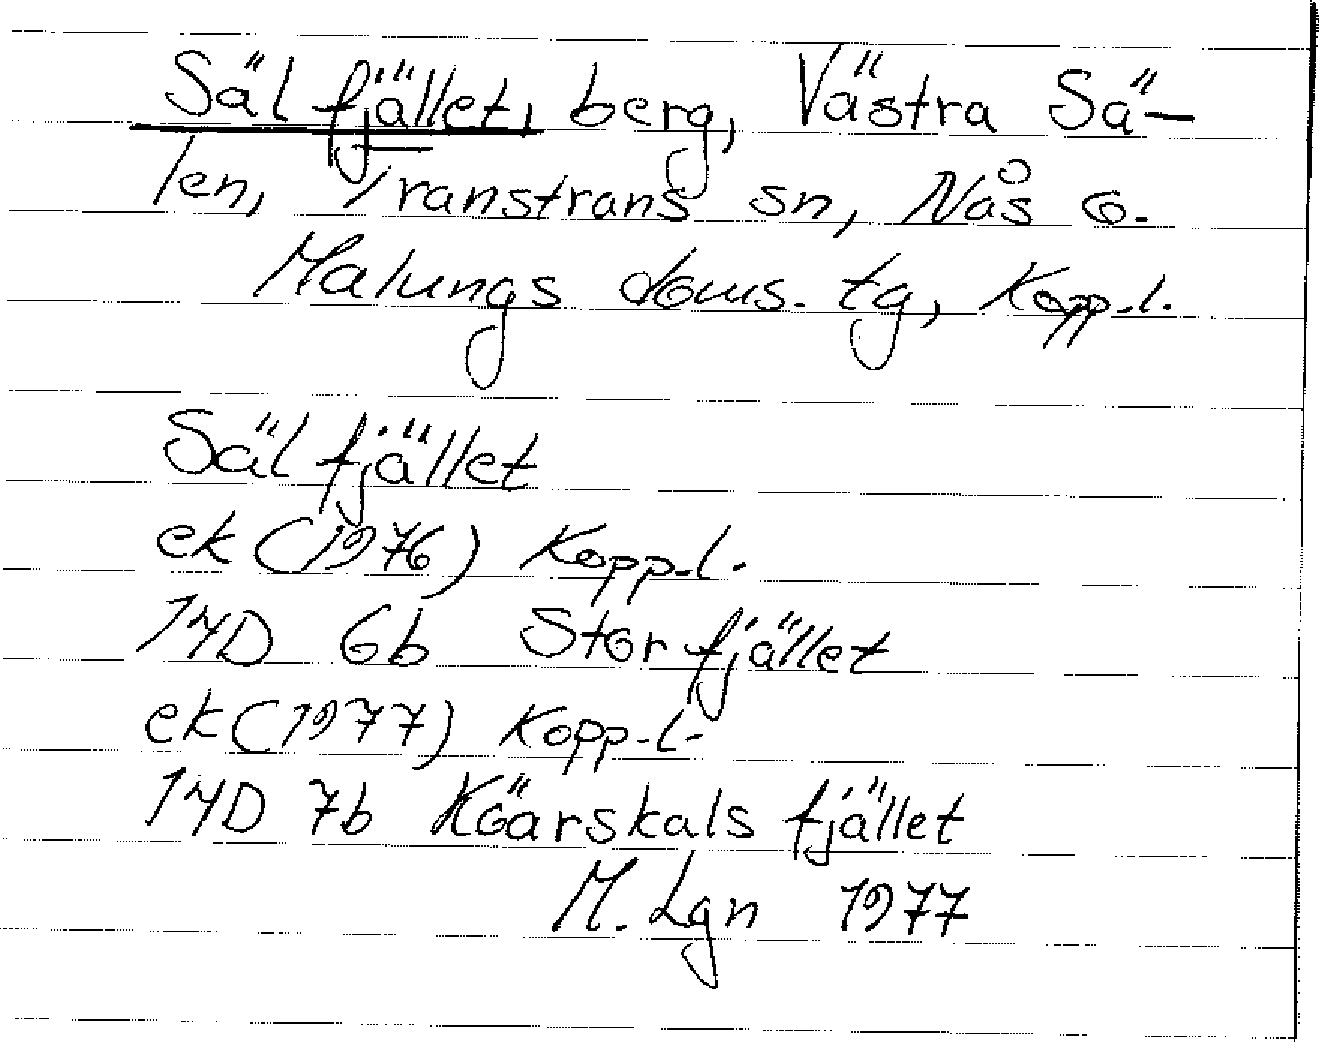 Sälfjället, berg, Västra Sä-
len, Transtrans sn, Nås o.
Malungs doms. tg, Kopp.l.
Sälfjället
ek (1976) Kopp.l.
14D 6b Storfjället
ek (1977) Kopp.l.
14D 7b Köarskalsfjället
M. Lgn 1977